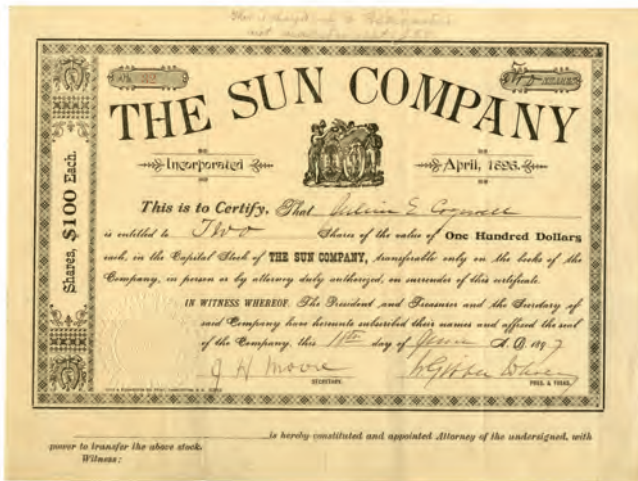 No. 32
SHARES
THE SUN COMPANY
Incorporated
April, 1895.
Shares, $100 Each.
This is to Certify, That
is entitled to Two Shares of the value of One Hundred Dollars
each, in the Capital Stock of THE SUN COMPANY, transferable only on the books of the
Company, in person or by attorney duly authorized, on surrender of this certificate.
IN WITNESS WHEREOF, The President and Treasurer and the Secretary of
said Company have hereunto subscribed their names and affixed the seal
of the Company, this day of June A. D. 1897
J H Moore
SECRETARY.
PRES. & TREAS.
is hereby constituted and appointed Attorney of the undersigned, with
power to transfer the above stock.
Witness: